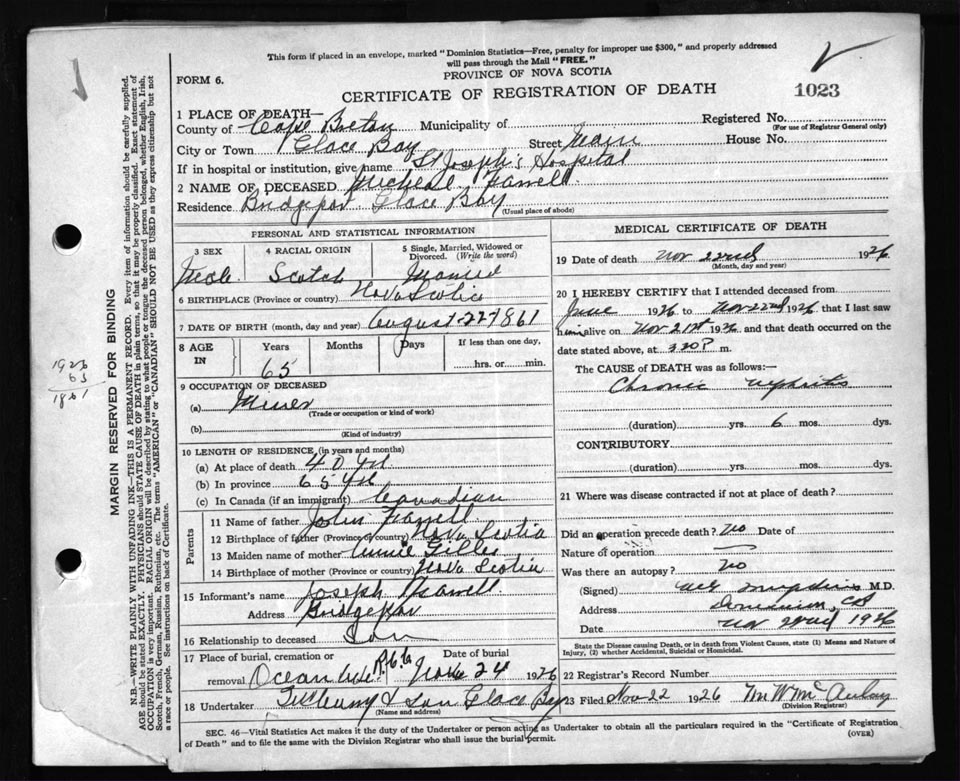 This form if placed in an envelope, marked "Dominion Statistics—Free, penalty for improper use $300," and properly addressed
will pass through the Mail "FREE."
FORM 6.
PROVINCE OF NOVA SCOTIA
CERTIFICATE OF REGISTRATION OF DEATH
1023
1 PLACE OF DEATH—
County of Cape Breton Municipality of
Registered No.
(For use of Registrar General only)
City or Town Glace Bay Street Main House No.
If in hospital or institution, give name St Joseph's Hospital
2 NAME OF DECEASED Micheal Farrell
Residence Bridgeport Glace Bay
(Usual place of abode)
PERSONAL AND STATISTICAL INFORMATION
3 SEX
Male
4 RACIAL ORIGIN
Scotch
5 Single, Married, Widowed or
Divorced. (Write the word)
Married
6 BIRTHPLACE (Province or country) Nova Scotia
7 DATE OF BIRTH (month, day and year) August 22 1861
8 AGE
IN
Years
65
Months
Days
If less than one day,
hrs. or min.
9 OCCUPATION OF DECEASED
(a) Miner
(Trade or occupation or kind of work)
(b)
(Kind of industry)
10 LENGTH OF RESIDENCE (in years and months)
(a) At place of death 40 yrs
(b) In province 65 yrs
(c) In Canada (if an immigrant) Canadian
Parents
11 Name of father John Farrell
12 Birthplace of father (Province or country) Nova Scotia
13 Maiden name of mother Annie Gillis
14 Birthplace of mother (Province or country) Nova Scotia
15 Informant's name Joseph Farrell
Address Bridgeport
16 Relationship to deceased Son
17 Place of burial, cremation or
removal Ocean View
Date of burial
Nov 24 1926
18 Undertaker & Son Glace Bay
(Name and address)
MEDICAL CERTIFICATE OF DEATH
19 Date of death Nov 22nd 1926
(Month, day and year)
20 I HEREBY CERTIFY that I attended deceased from
June 1926 to Nov 22nd 1926 that I last saw
him alive on Nov 21st 1926 and that death occurred on
date stated above, at 3 30 P m.
The CAUSE of DEATH was as follows:—
Chronic nephritis
(duration) yrs. 6 mos. dys.
CONTRIBUTORY.
(duration) yrs. mos. dys.
21 Where was disease contracted if not at place of death?
Did an operation precede death? No Date of
Nature of operation
Was there an autopsy? No
(Signed) M.D.
Address Dominion, CB
Date Nov 22nd 1926
State the Disease causing Death, or in death from Violent Causes, state (1) Means and Nature of
Injury, (2) whether Accidental, Suicidal or Homicidal.
22 Registrar's Record Number
23 Filed Nov 22 1926 M W McAulay
(Division Registrar)
SEC. 46—Vital Statistics Act makes it duty of the Undertaker or person acting as Undertaker to obtain all the particulars required in the "Certificate of Registration
of Death" and to file the same with the Division Registrar who shall issue the burial permit.
(OVER)
MARGIN RESERVED FOR BINDING
N.B.—WRITE PLAINLY WITH UNFADING INK—THIS IS A PERMANENT RECORD. Every item of information should be carefully supplied.
AGE should be stated EXACTLY. PHYSICIANS should STATE CAUSE OF DEATH in plain terms, so that it may be properly classified. Exact statement of
OCCUPATION is very important. RACIAL ORIGIN will be described by stating to what people or tongue the deceased person belonged, whether English, Irish,
Scotch, French, German, Russian, Ruthenian, etc. The terms "AMERICAN" or "CANADIAN" SHOULD NOT BE USED as they express citizenship but not
a race or people. See instructions on back of Certificate.
1926
65
1861